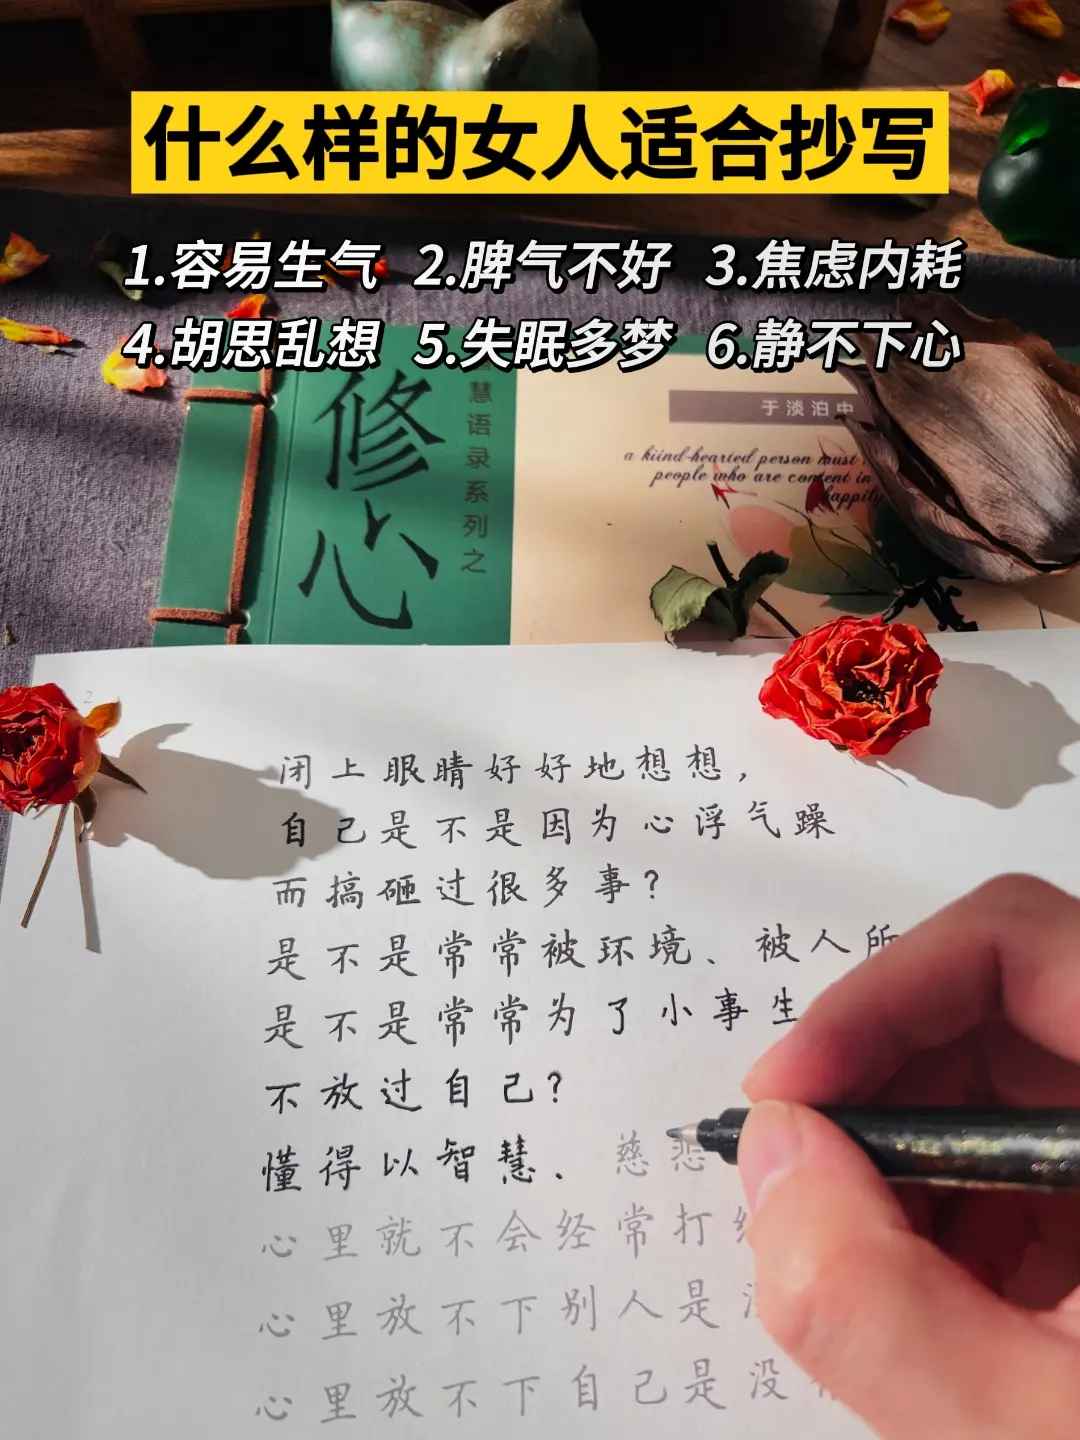 什么样的女人适合抄写
1.容易生气 2.脾气不好 3.焦虑内耗
4.胡思乱想 5.失眠多梦 6.静不下心
修心
慧语录系列之
于淡泊中
a kiind-hearted person must
people who are content in
happily
2
闭上眼睛好好地想想，
自己是不是因为心浮气躁
而搞砸过很多事？
是不是常常被环境、被人所
是不是常常为了小事生
不放过自己？
懂得以智慧、慈悲
心里就不会经常打
心里放不下别人是
心里放不下自己是没